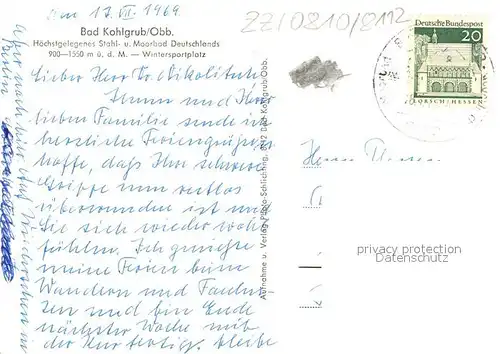 am 17. VII. 1969
ZZ/0210/8112
Bad Kohlgrub/Obb.
Höchstgelegenes Stahl- u. Moorbad Deutschlands
900—1550 m ü. d. M. — Wintersportplatz
Deutsche Bundespost
20
LORSCH/HESSEN
Lieber Herr Dr.
Ihnen und Ihrer
lieben Familie sende ich
herzliche Feriengrüsse
hoffe, daß Ihre schwere
Grippe nun restlos
überwunden ist und
Sie sich wieder wohl
fühlen. Ich genieße
meine Ferien beim
Wandern und
und bin Ende
nächster Woche mit
der Kur fertig, bleibe
Aufnahme u. Verlag Photo-Schlichting, 8112 Bad Kohlgrub/Obb.
Herrn
privacy protection
Datenschutz
aber noch hier. Auf Wiedersehen in
Berlin